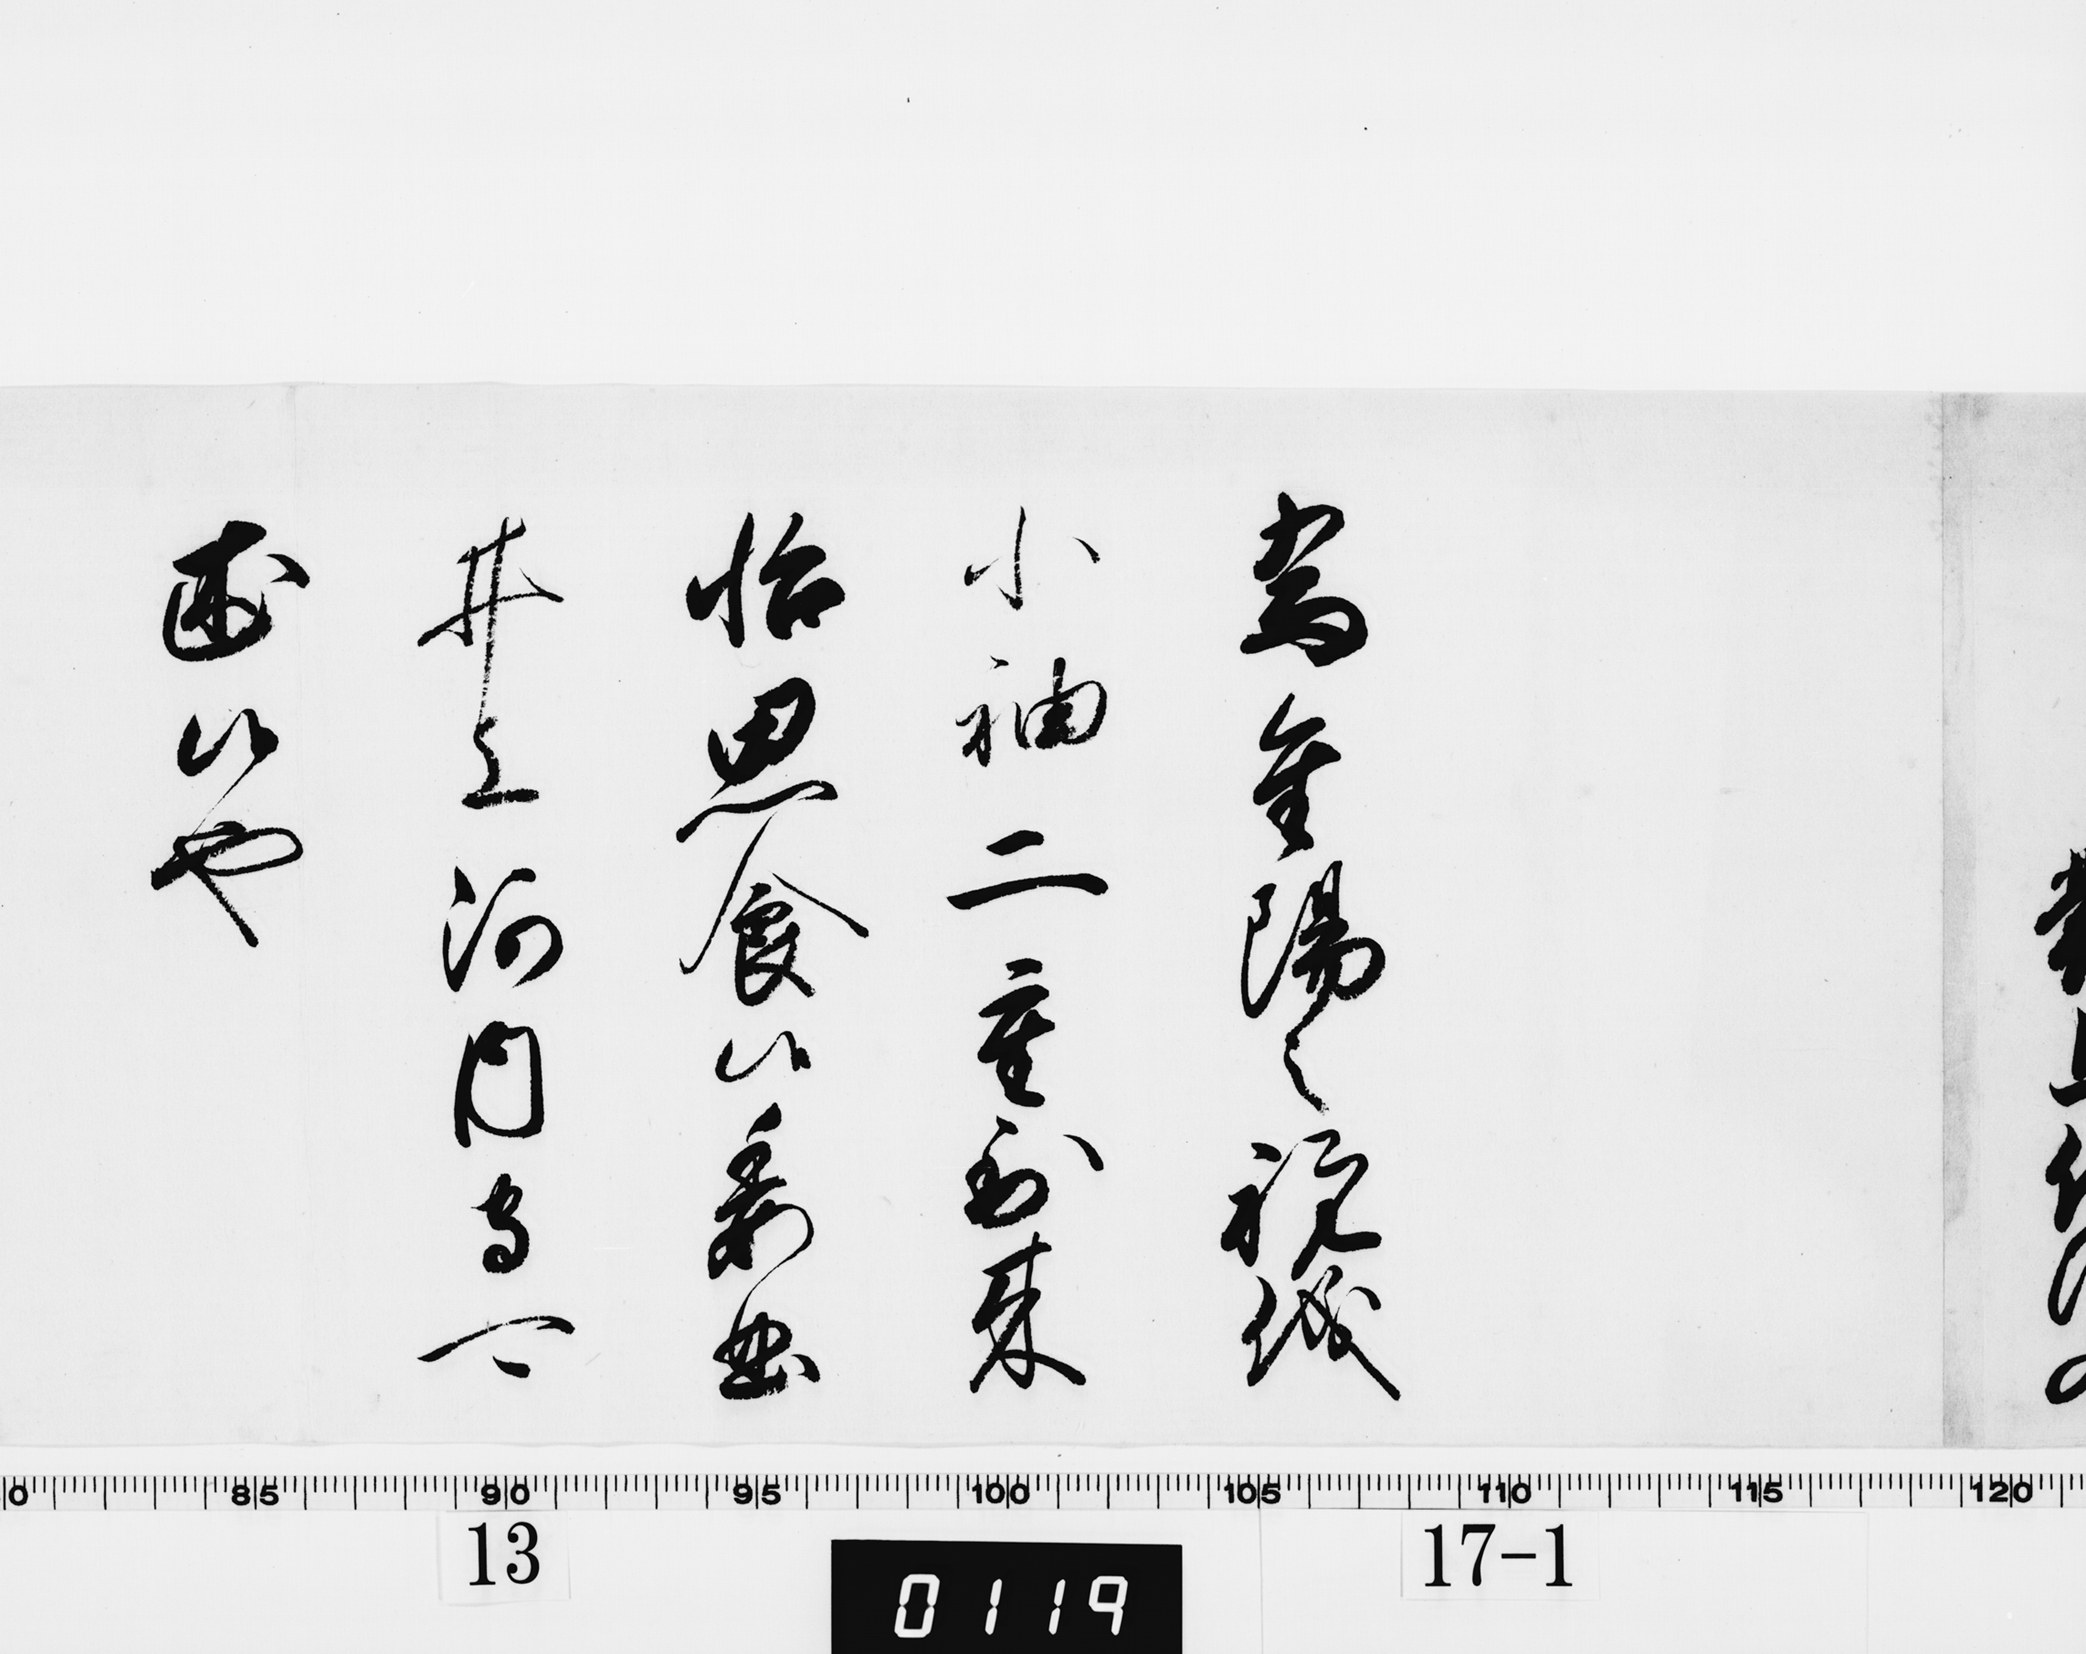 為重陽之祝儀
小袖二重到来
怡思食候委曲
井上河内守可
述候也
85 90 95 100 105 110 115 120
13
17-1
0119